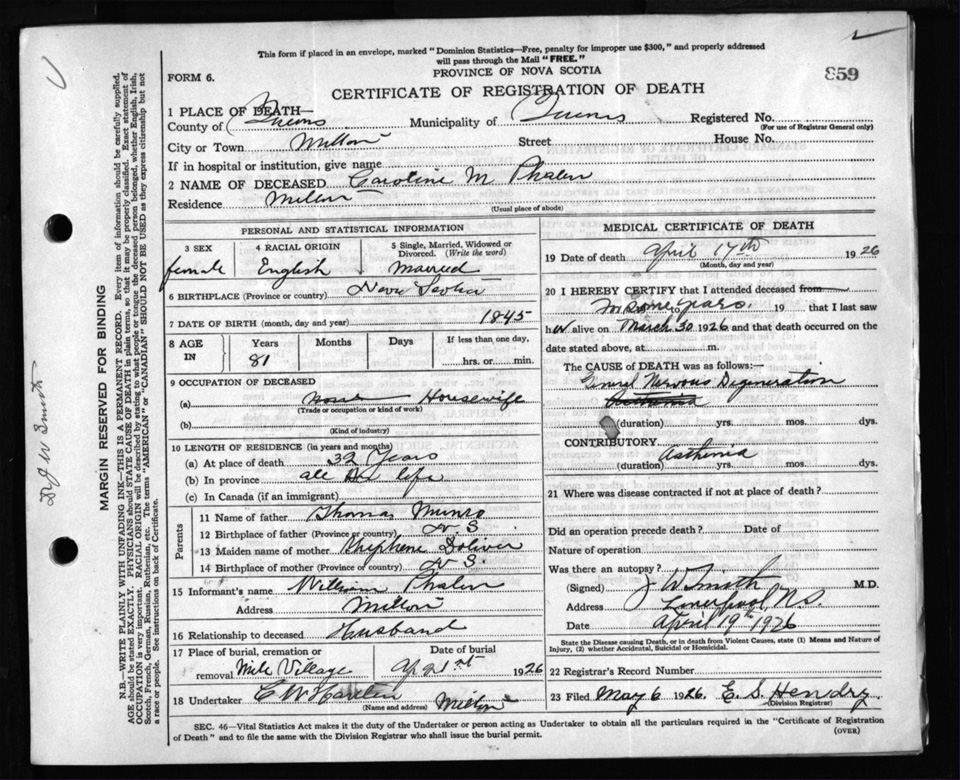 This form if placed in an envelope, marked "Dominion Statistics—Free, penalty for improper use $300," and properly addressed
will pass through the Mail "FREE."
FORM 6.
PROVINCE OF NOVA SCOTIA
859
CERTIFICATE OF REGISTRATION OF DEATH
1 PLACE OF DEATH—
County of Queens Municipality of Queens Registered No.
(For use of Registrar General only)
City or Town Milton Street House No.
If in hospital or institution, give name
2 NAME OF DECEASED Caroline M Phalen
Residence Milton
(Usual place of abode)
PERSONAL AND STATISTICAL INFORMATION
3 SEX 4 RACIAL ORIGIN 5 Single, Married, Widowed or
Divorced. (Write the word)
female English Married
6 BIRTHPLACE (Province or country) Nova Scotia
7 DATE OF BIRTH (month, day and year) 1845
8 AGE IN Years Months Days If less than one day,
81 hrs. or min.
9 OCCUPATION OF DECEASED
(a) Housewife
(Trade or occupation or kind of work)
(b)
(Kind of industry)
10 LENGTH OF RESIDENCE (in years and months)
(a) At place of death 32 years
(b) In province all her life
(c) In Canada (if an immigrant)
Parents
11 Name of father Thomas Munro
12 Birthplace of father (Province or country) N. S.
13 Maiden name of mother Doliver
14 Birthplace of mother (Province or country) N. S.
15 Informant's name William Phalen
Address Milton
16 Relationship to deceased Husband
17 Place of burial, cremation or Date of burial
removal Mill Village Ap 21st 1926
18 Undertaker Milton
(Name and address)
MEDICAL CERTIFICATE OF DEATH
19 Date of death April 17th 1926
(Month, day and year)
20 I HEREBY CERTIFY that I attended deceased from
for some years 19 that I last saw
her alive on March 30 1926 and that death occurred on the
date stated above, at m.
The CAUSE OF DEATH was as follows:—
General Nervous Degeneration
(duration) yrs. mos. dys.
CONTRIBUTORY Asthenia
(duration) yrs. mos. dys.
21 Where was disease contracted if not at place of death?
Did an operation precede death? Date of
Nature of operation
Was there an autopsy?
(Signed) J W Smith M.D.
Address Liverpool, N.S.
Date April 19th 1926
State the Disease causing Death, or in death from Violent Causes, state (1) Means and Nature of
Injury, (2) whether Accidental, Suicidal or Homicidal.
22 Registrar's Record Number
23 Filed May 6 1926. E. S. Hendry
(Division Registrar)
SEC. 46—Vital Statistics Act makes it the duty of the Undertaker or person acting as Undertaker to obtain all the particulars required in the "Certificate of Registration
of Death" and to file the same with the Division Registrar who shall issue the burial permit.
(OVER)
MARGIN RESERVED FOR BINDING
N.B.—WRITE PLAINLY WITH UNFADING INK—THIS IS A PERMANENT RECORD. Every item of information should be carefully supplied.
AGE should be stated EXACTLY. PHYSICIANS should STATE CAUSE OF DEATH in plain terms, so that it may be properly classified. Exact statement of
OCCUPATION is very important. RACIAL ORIGIN will be described by stating to what people or tongue the deceased person belonged, whether English, Irish,
Scotch, French, German, Russian, Ruthenian, etc. The terms "AMERICAN" or "CANADIAN" SHOULD NOT BE USED as they express citizenship but not
a race or people. See instructions on back of Certificate.
Dr J W Smith